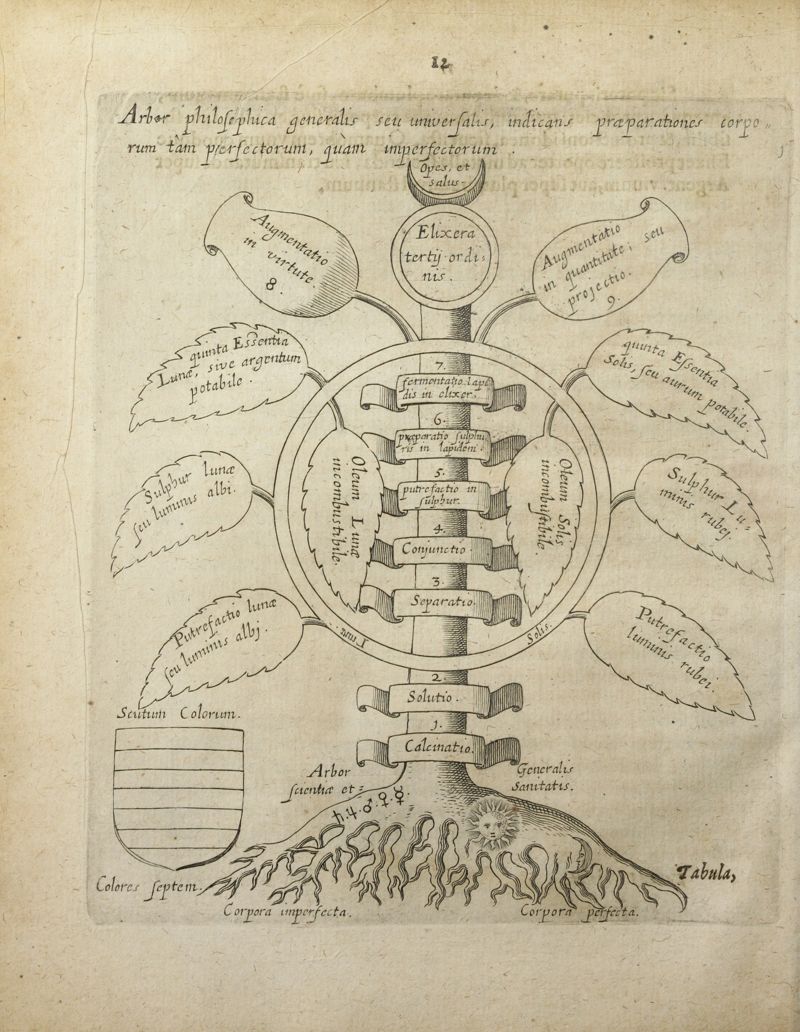 12
Arbor philosophica generalis seu universalis, indicans præparationes corpo-
rum tàm pærfectorum, quàm imperfectorum.
Opes, et
salus.
Elixera
tertij ordi-
nis.
Augmentatio
in virtute.
8.
Augmentatio
in quantitate, seu
projectio.
9.
quinta Essentia
Lunæ, sive argentum
potabile.
quinta Essentia
Solis, seu aurum potabile.
7.
fermentatio lapi-
dis in elixer.
6.
præparatio sulphu
ris in lapidem.
5.
putrefactio in
sulphur.
4.
Conjunctio.
3.
Separatio.
Oleum Lunæ
incombustibile.
Oleum Solis
incombustibile.
Sulphur lunæ
seu luminis albi.
Sulphur Lu-
minis rubei.
Putrefactio lunæ
seu luminis albj.
Putrefactio
luminis rubei.
Solis.
2.
Solutio.
1.
Calcinatio.
Scutum Colorum.
Arbor
scientiæ et
Generalis
Sanitatis.
♄ ♃ ♂ ♀ ☿
Colores septem.
Tabula,
Corpora imperfecta.
Corpora perfecta.